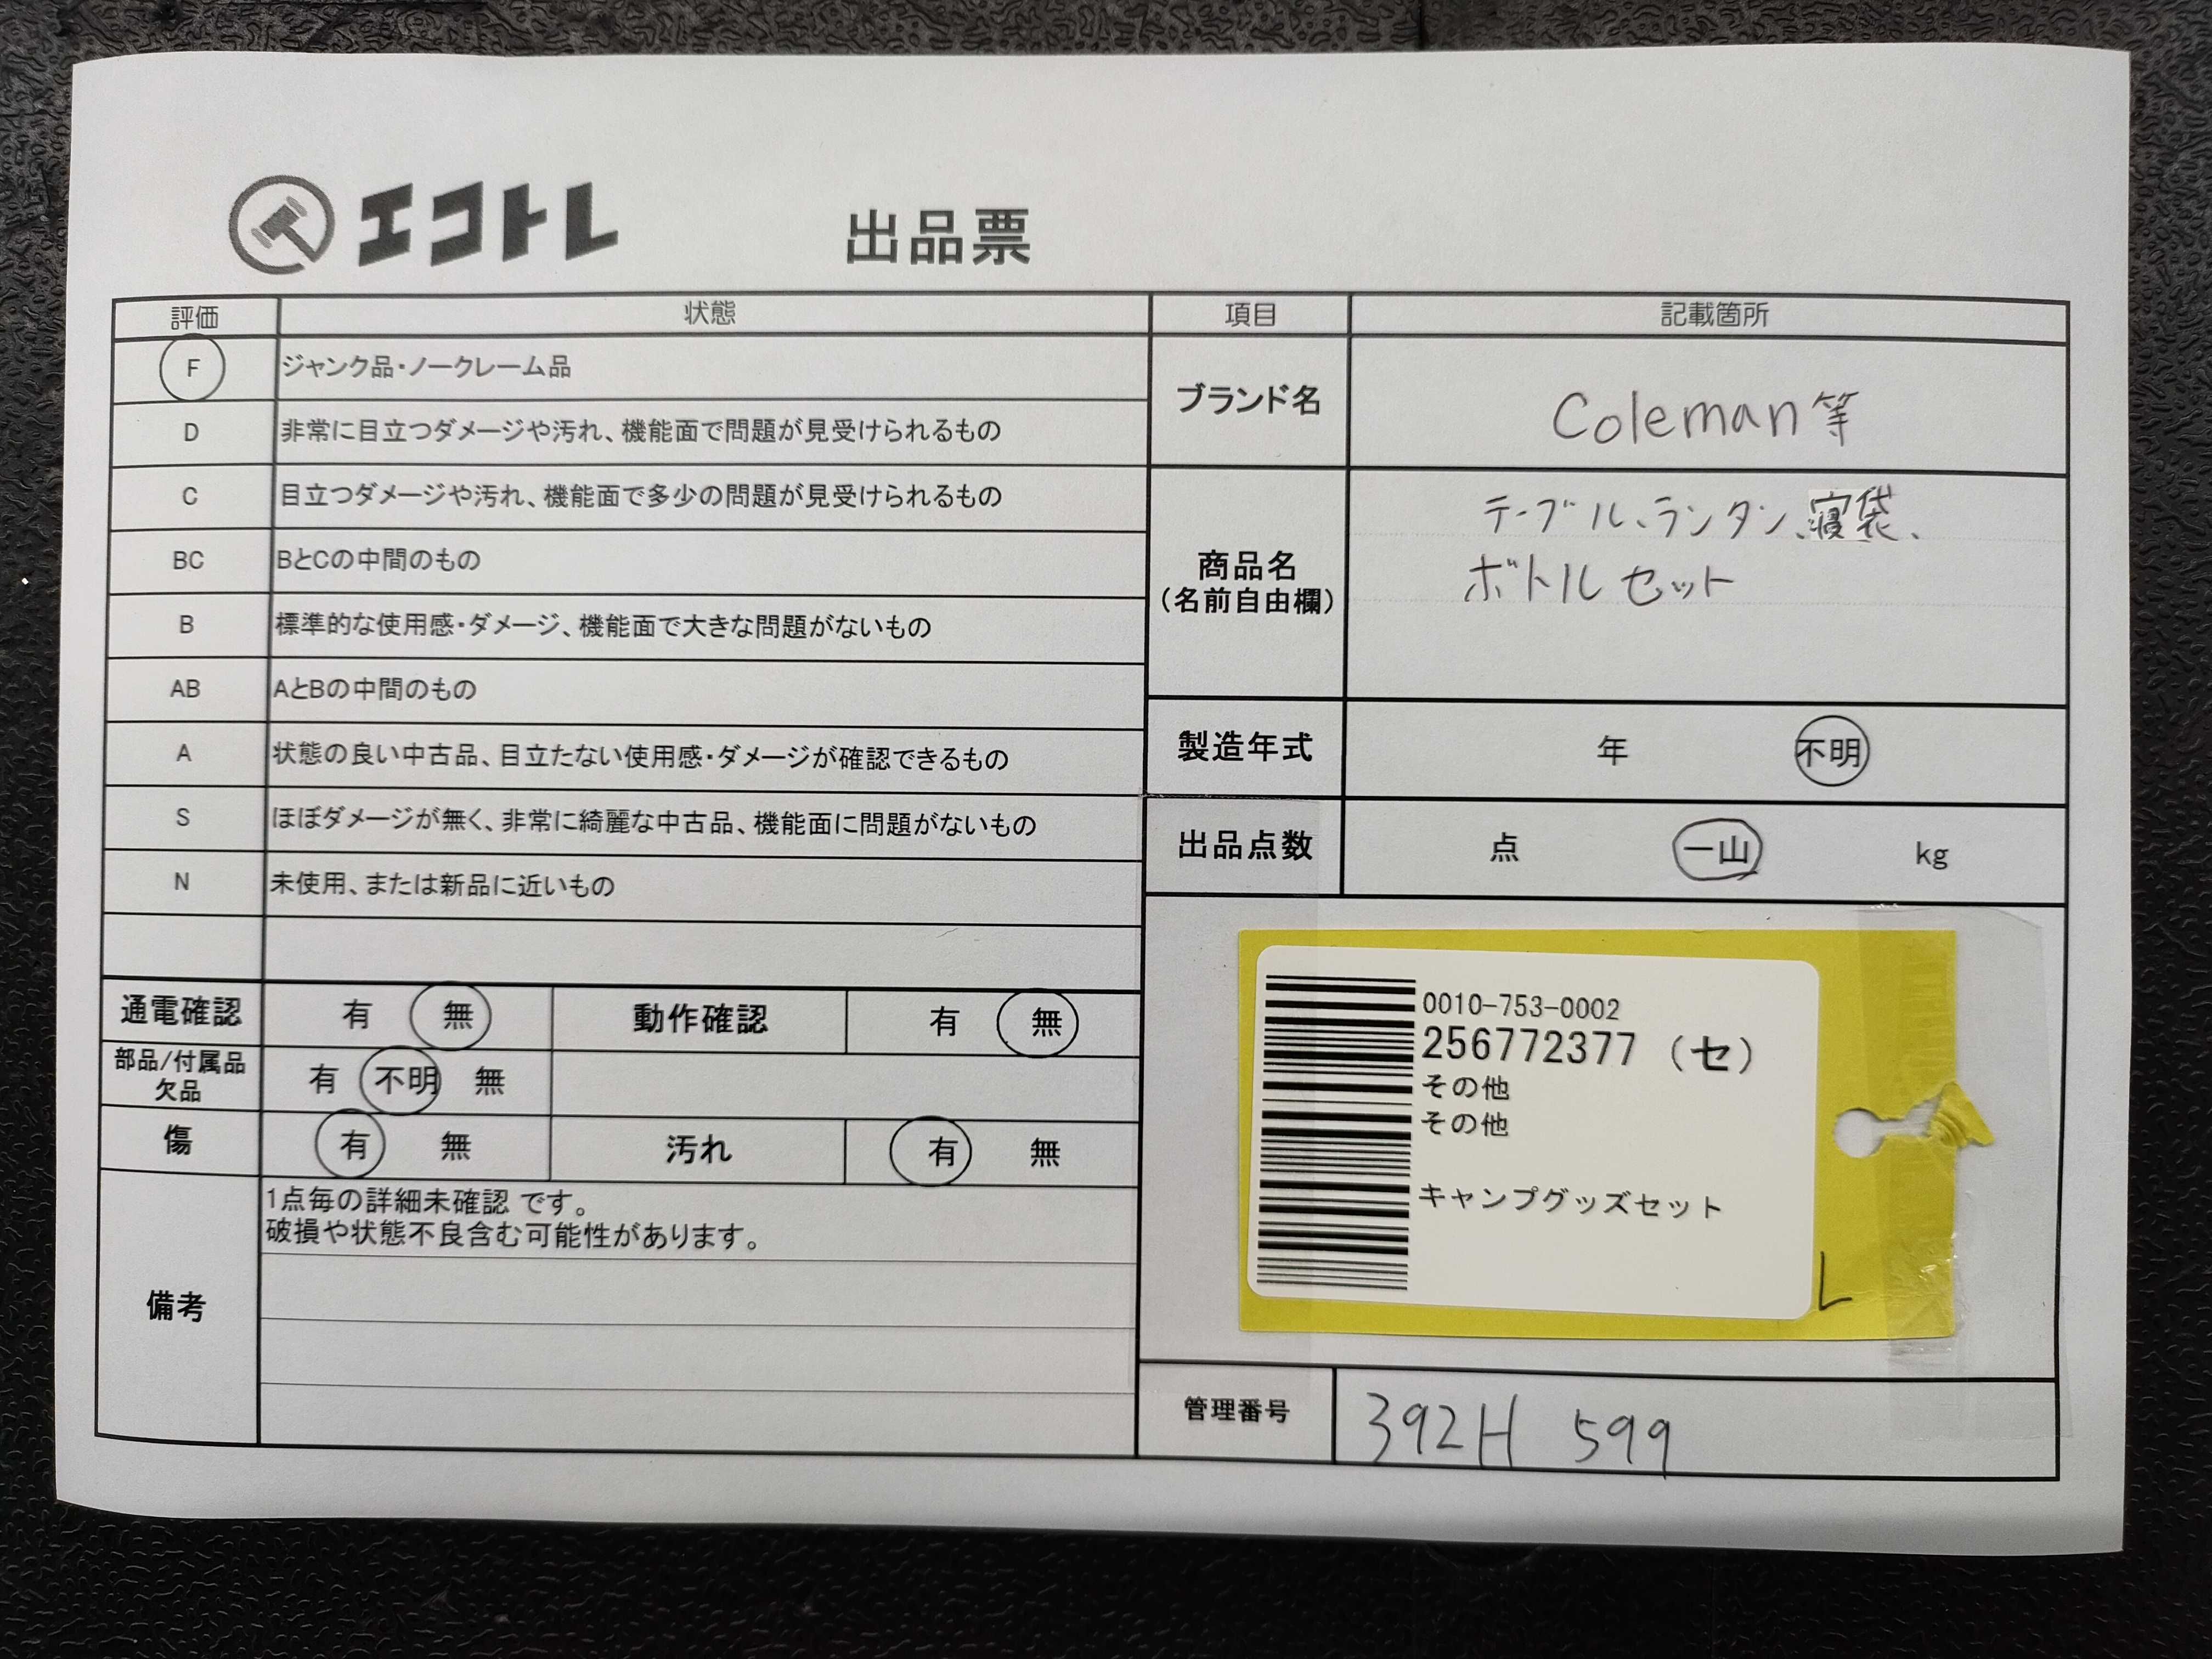 エコトレ 出品票
評価 状態
F ジャンク品・ノークレーム品
D 非常に目立つダメージや汚れ、機能面で問題が見受けられるもの
C 目立つダメージや汚れ、機能面で多少の問題が見受けられるもの
BC BとCの中間のもの
B 標準的な使用感・ダメージ、機能面で大きな問題がないもの
AB AとBの中間のもの
A 状態の良い中古品、目立たない使用感・ダメージが確認できるもの
S ほぼダメージが無く、非常に綺麗な中古品、機能面に問題がないもの
N 未使用、または新品に近いもの
通電確認 有 無 動作確認 有 無
部品/付属品
欠品 有 不明 無
傷 有 無 汚れ 有 無
備考
1点毎の詳細未確認 です。
破損や状態不良含む可能性があります。
項目 記載箇所
ブランド名 Coleman等
商品名
(名前自由欄)
テーブル、ランタン、寝袋、
ボトルセット
製造年式 年 不明
出品点数 点 一山 kg
0010-753-0002
256772377 (セ)
その他
その他
キャンプグッズセット
L
管理番号 392H 599